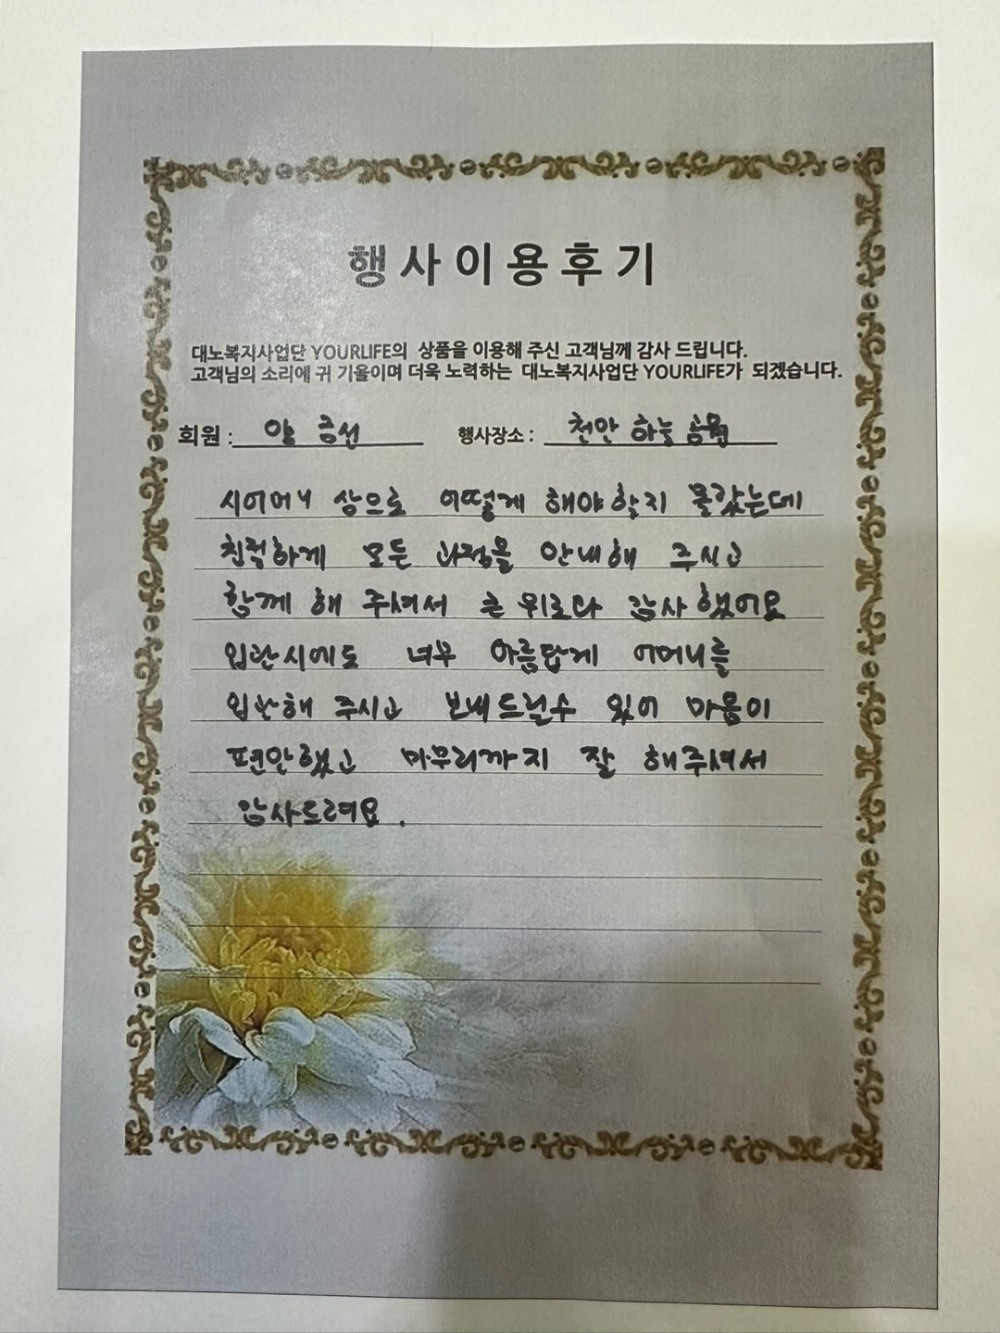 행사이용후기
대노복지사업단 YOURLIFE의 상품을 이용해 주신 고객님께 감사 드립니다.
고객님의 소리에 귀 기울이며 더욱 노력하는 대노복지사업단 YOURLIFE가 되겠습니다.
회원 : 금선 행사장소 : 천안 하늘 공원
시어머니 상으로 어떻게 해야할지 몰랐는데
친절하게 모든 과정을 안내해 주시고
함께 해 주셔서 큰 위로와 감사했어요
입관시에도 너무 아름답게 어머니를
입관해 주시고 보내드릴수 있어 마음이
편안했고 마무리까지 잘 해주셔서
감사드려요.